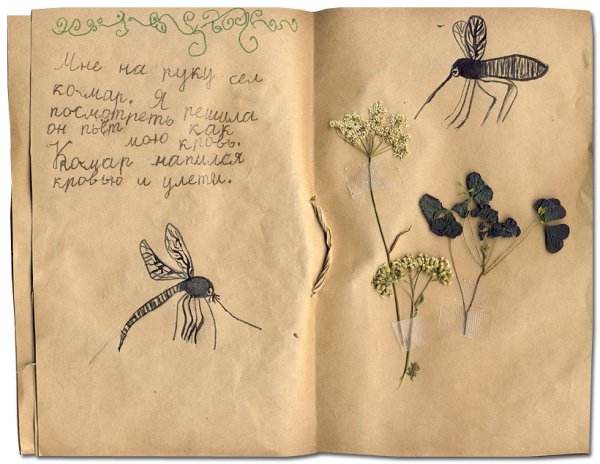 Мне на руку сел
комар. Я
посмотреть решила
он пьёт мою как
кровь.
Комар напился
кровью и улети.